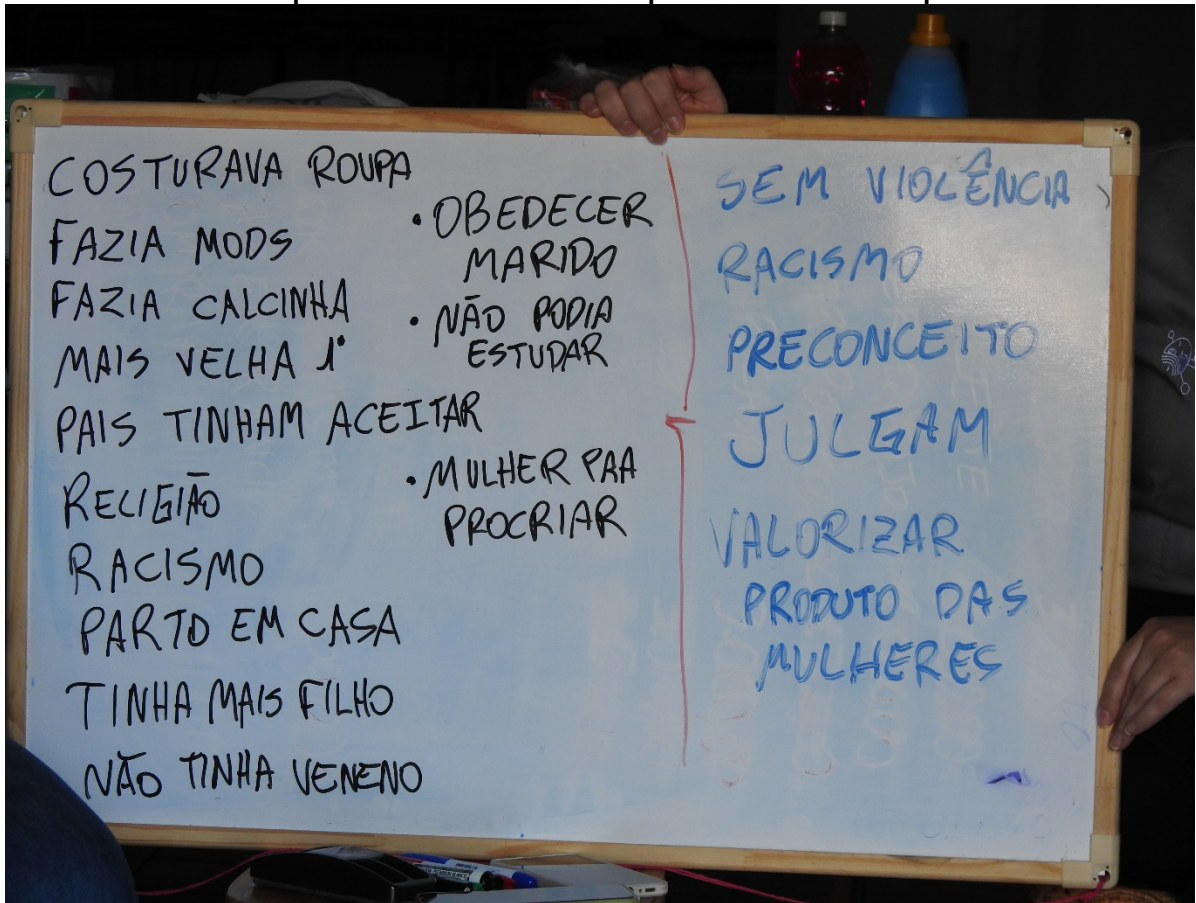 COSTURAVA ROUPA
FAZIA MODS
FAZIA CALCINHA
MAIS VELHA 1º
PAIS TINHAM ACEITAR
RELIGIÃO
RACISMO
PARTO EM CASA
TINHA MAIS FILHO
NÃO TINHA VENENO
• OBEDECER
MARIDO
• NÃO PODIA
ESTUDAR
• MULHER PAA
PROCRIAR
SEM VIOLÊNCIA
RACISMO
PRECONCEITO
JULGAM
VALORIZAR
PRODUTO DAS
MULHERES